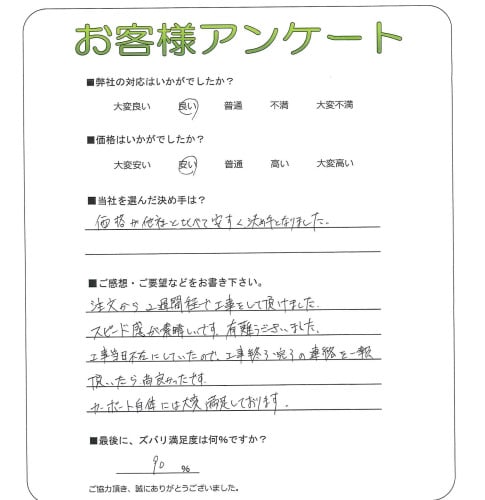 お客様アンケート
■弊社の対応はいかがでしたか？
大変良い 良い 普通 不満 大変不満
■価格はいかがでしたか？
大変安い 安い 普通 高い 大変高い
■当社を選んだ決め手は？
価格が他社と比べて安すく決め手となりました。
■ご感想・ご要望などをお書き下さい。
注文から2週間程で工事をして頂けました。
スピード感が素晴しいです。有難うございました。
工事当日不在にしていたので、工事終了・完了の連絡を一報
頂いたら尚良かったです。
カーポート自体には大変満足しております。
■最後に、ズバリ満足度は何%ですか？
90 %
ご協力頂き、誠にありがとうございました。